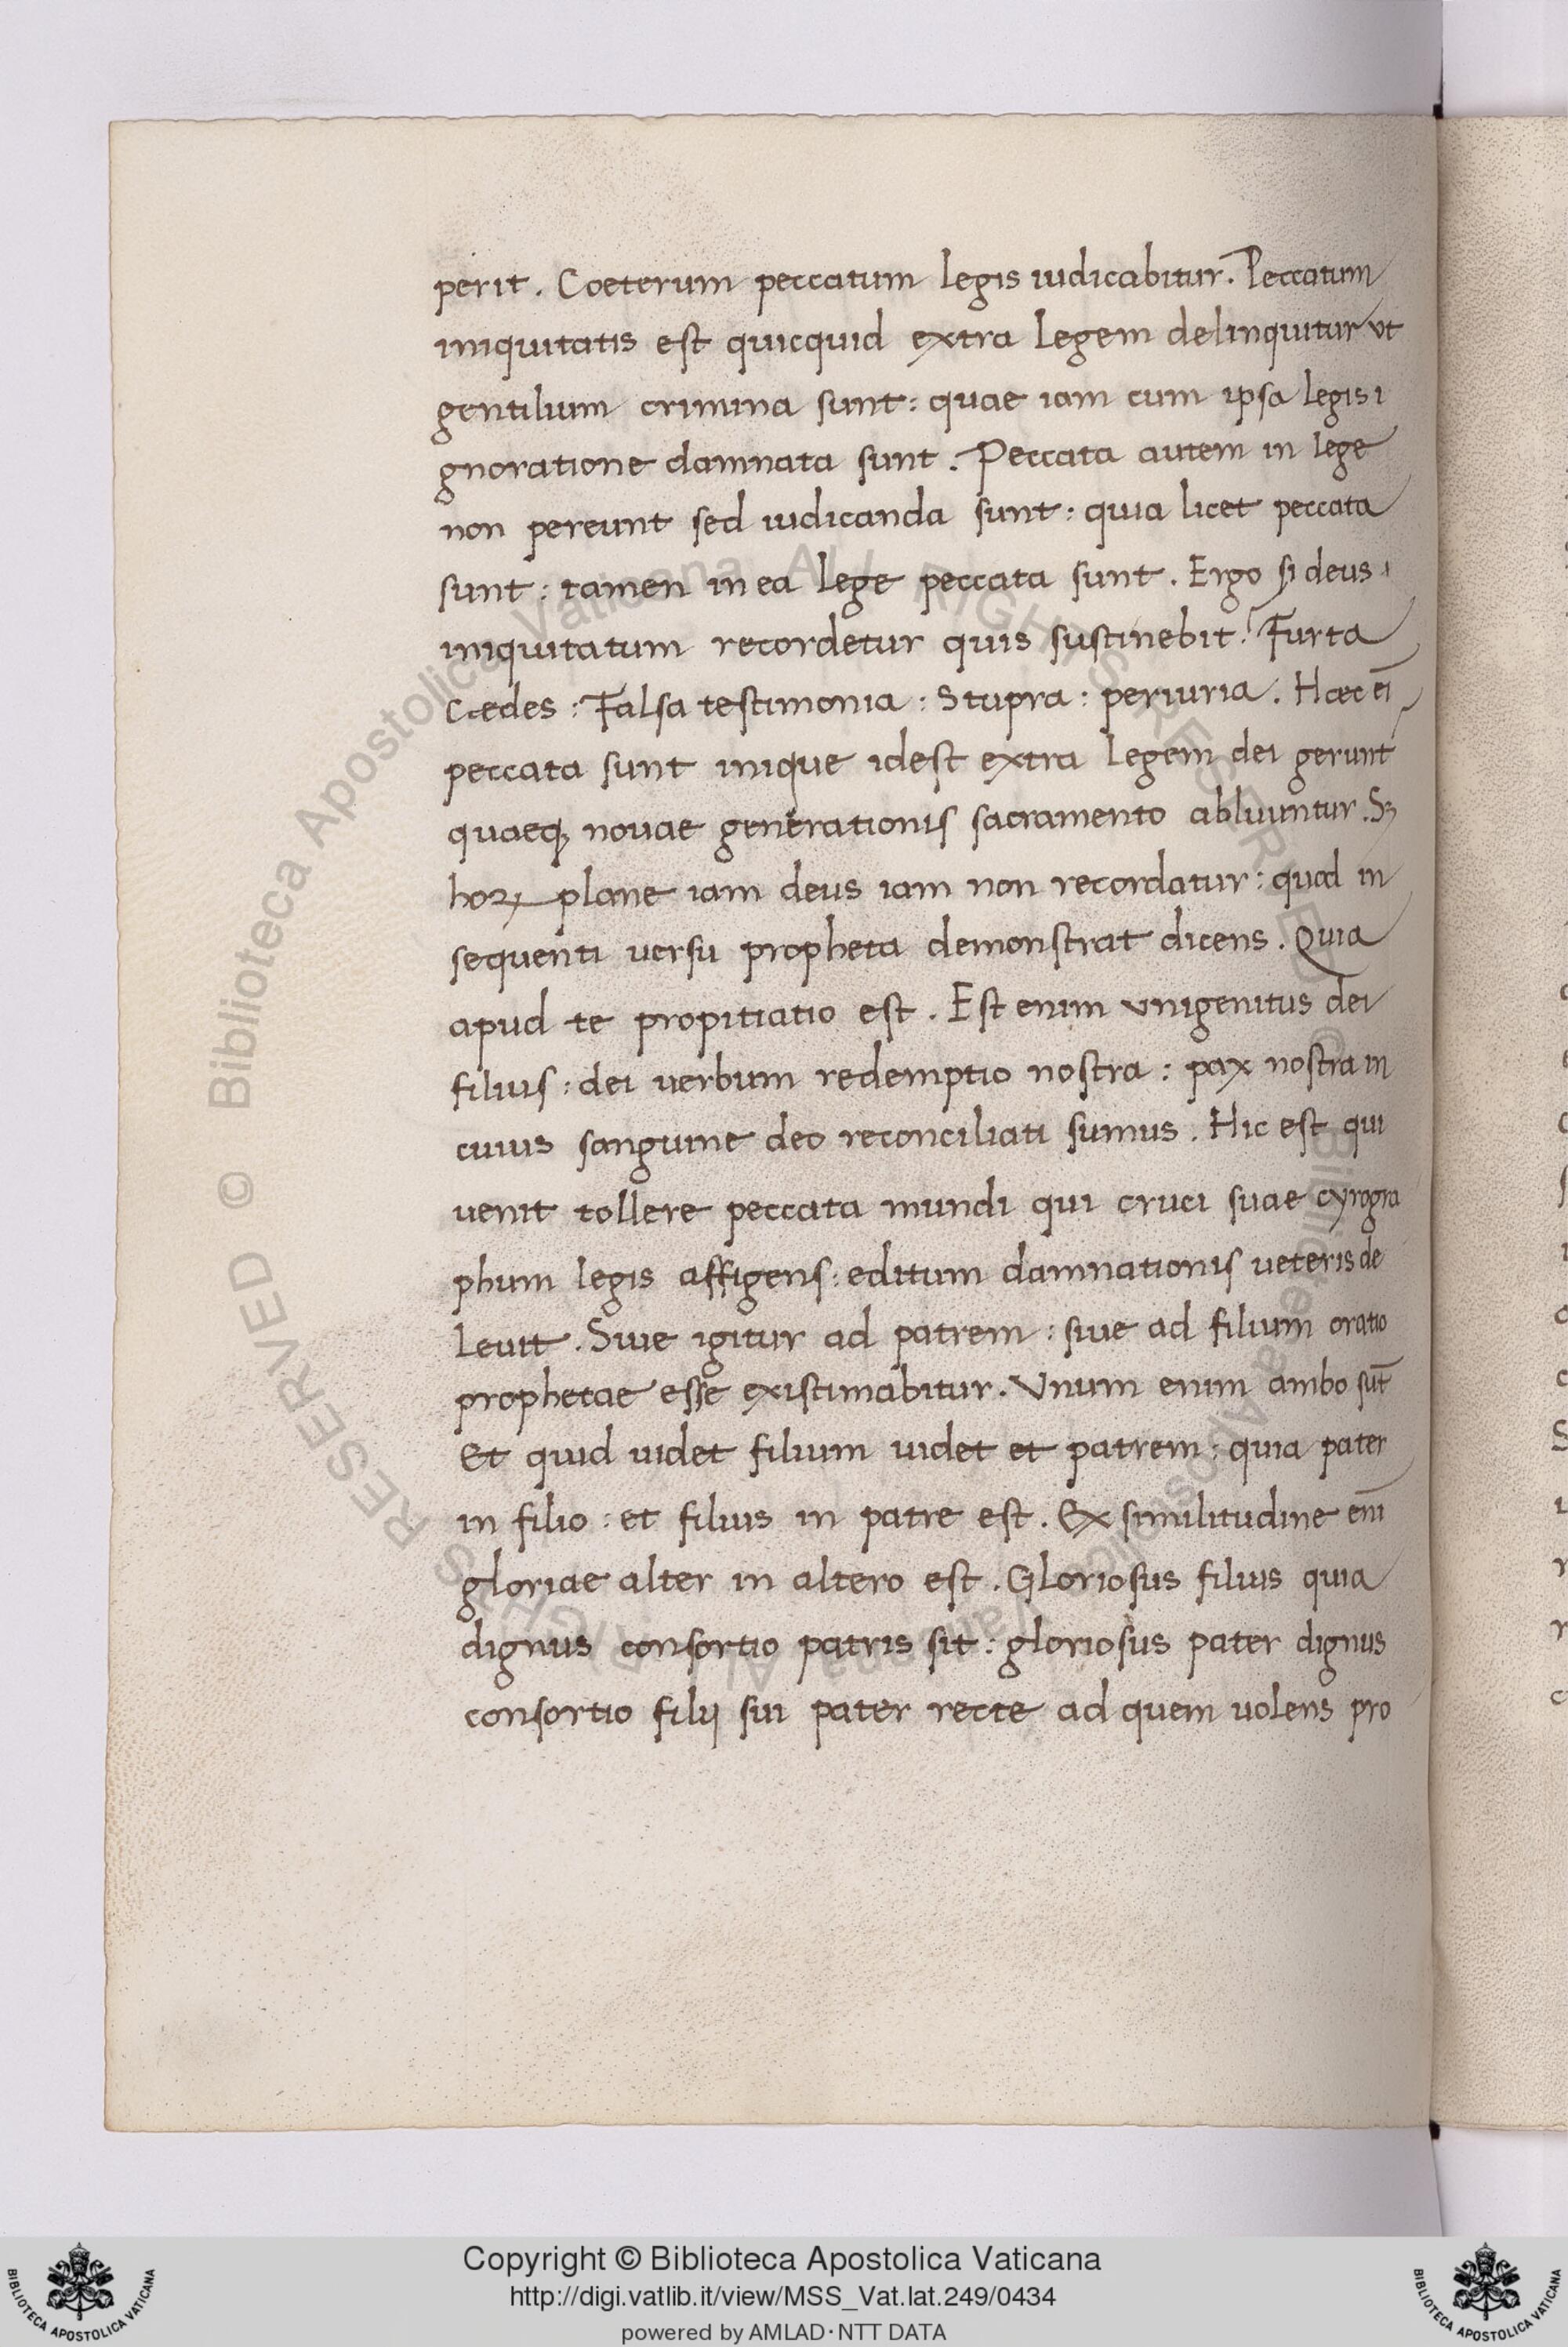 perit. Coeterum peccatum legis iudicabitur. Peccatum
iniquitatis est quicquid extra legem delinquitur ut
gentilium crimina sunt: quae iam cum ipsa legis i
gnoratione damnata sunt. Peccata autem in lege
non pereunt sed iudicanda sunt: quia licet peccata
sunt: tamen in ea lege peccata sunt. Ergo si deus i
iniquitatum recordetur quis sustinebit? Furta
Cædes: Falsa testimonia: Stupra: periuria. Hæc ei̅
peccata sunt inique idest extra legem dei gerunt
quaeqꝫ nouae generationis sacramento abluuntur. Sꝫ
hoꝝ plane iam deus iam non recordatur: quod in
sequenti uersu propheta demonstrat dicens. Quia
apud te propitiatio est. Est enim vnigenitus dei
filius: dei uerbum redemptio nostra: pax nostra in
cuius sanguine deo reconciliati sumus. Hic est qui
uenit tollere peccata mundi qui cruci suae cyrogra
phum legis affigens: editum damnationis ueteris de
leuit. Siue igitur ad patrem: siue ad filium oratio
prophetae esse existimabitur. Vnum enim ambo su̅t
Et quid uidet filium uidet et patrem: quia pater
in filio: et filius in patre est. Ex similitudine eni̅
gloriae alter in altero est. Gloriosus filius quia
dignus consortio patris sit: gloriosus pater dignus
consortio filij sui pater recte ad quem uolens pro
© Biblioteca Apostolica Vaticana ALL RIGHTS RESERVED
© Biblioteca Apostolica Vaticana ALL RIGHTS RESERVED
Copyright © Biblioteca Apostolica Vaticana
http://digi.vatlib.it/view/MSS_Vat.lat.249/0434
powered by AMLAD·NTT DATA
BIBLIOTECA APOSTOLICA VATICANA
BIBLIOTECA APOSTOLICA VATICANA